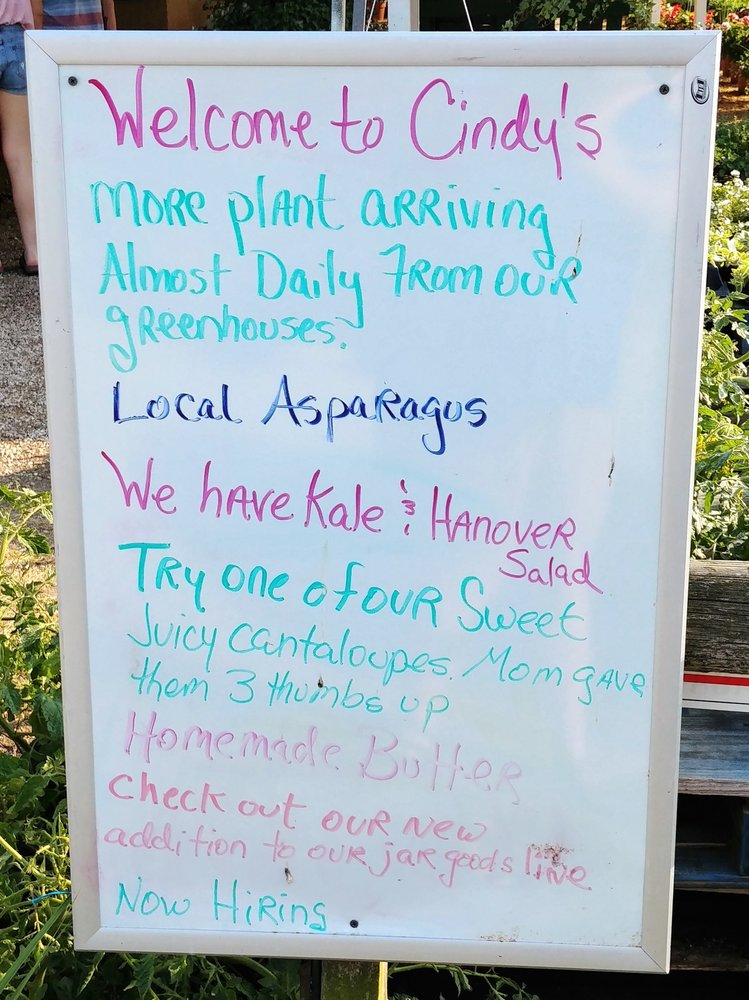 Welcome to Cindy's
More plant arriving
Almost Daily From our
greenhouses.
Local Asparagus
We have Kale & Hanover
Salad
Try one of our Sweet
Juicy cantaloupes. Mom gave
them 3 thumbs up
Homemade Butter
check out our new
addition to our jar goods line
Now Hiring